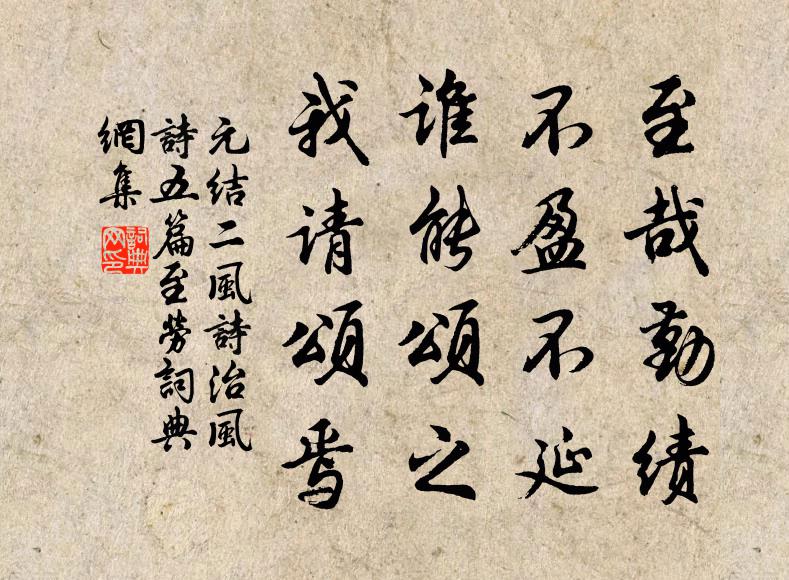 至哉勤绩
不盈不延
谁能頌之
我请頌焉
元结二風詩治風
詩五篇至勞詞典
網集
詞典網印